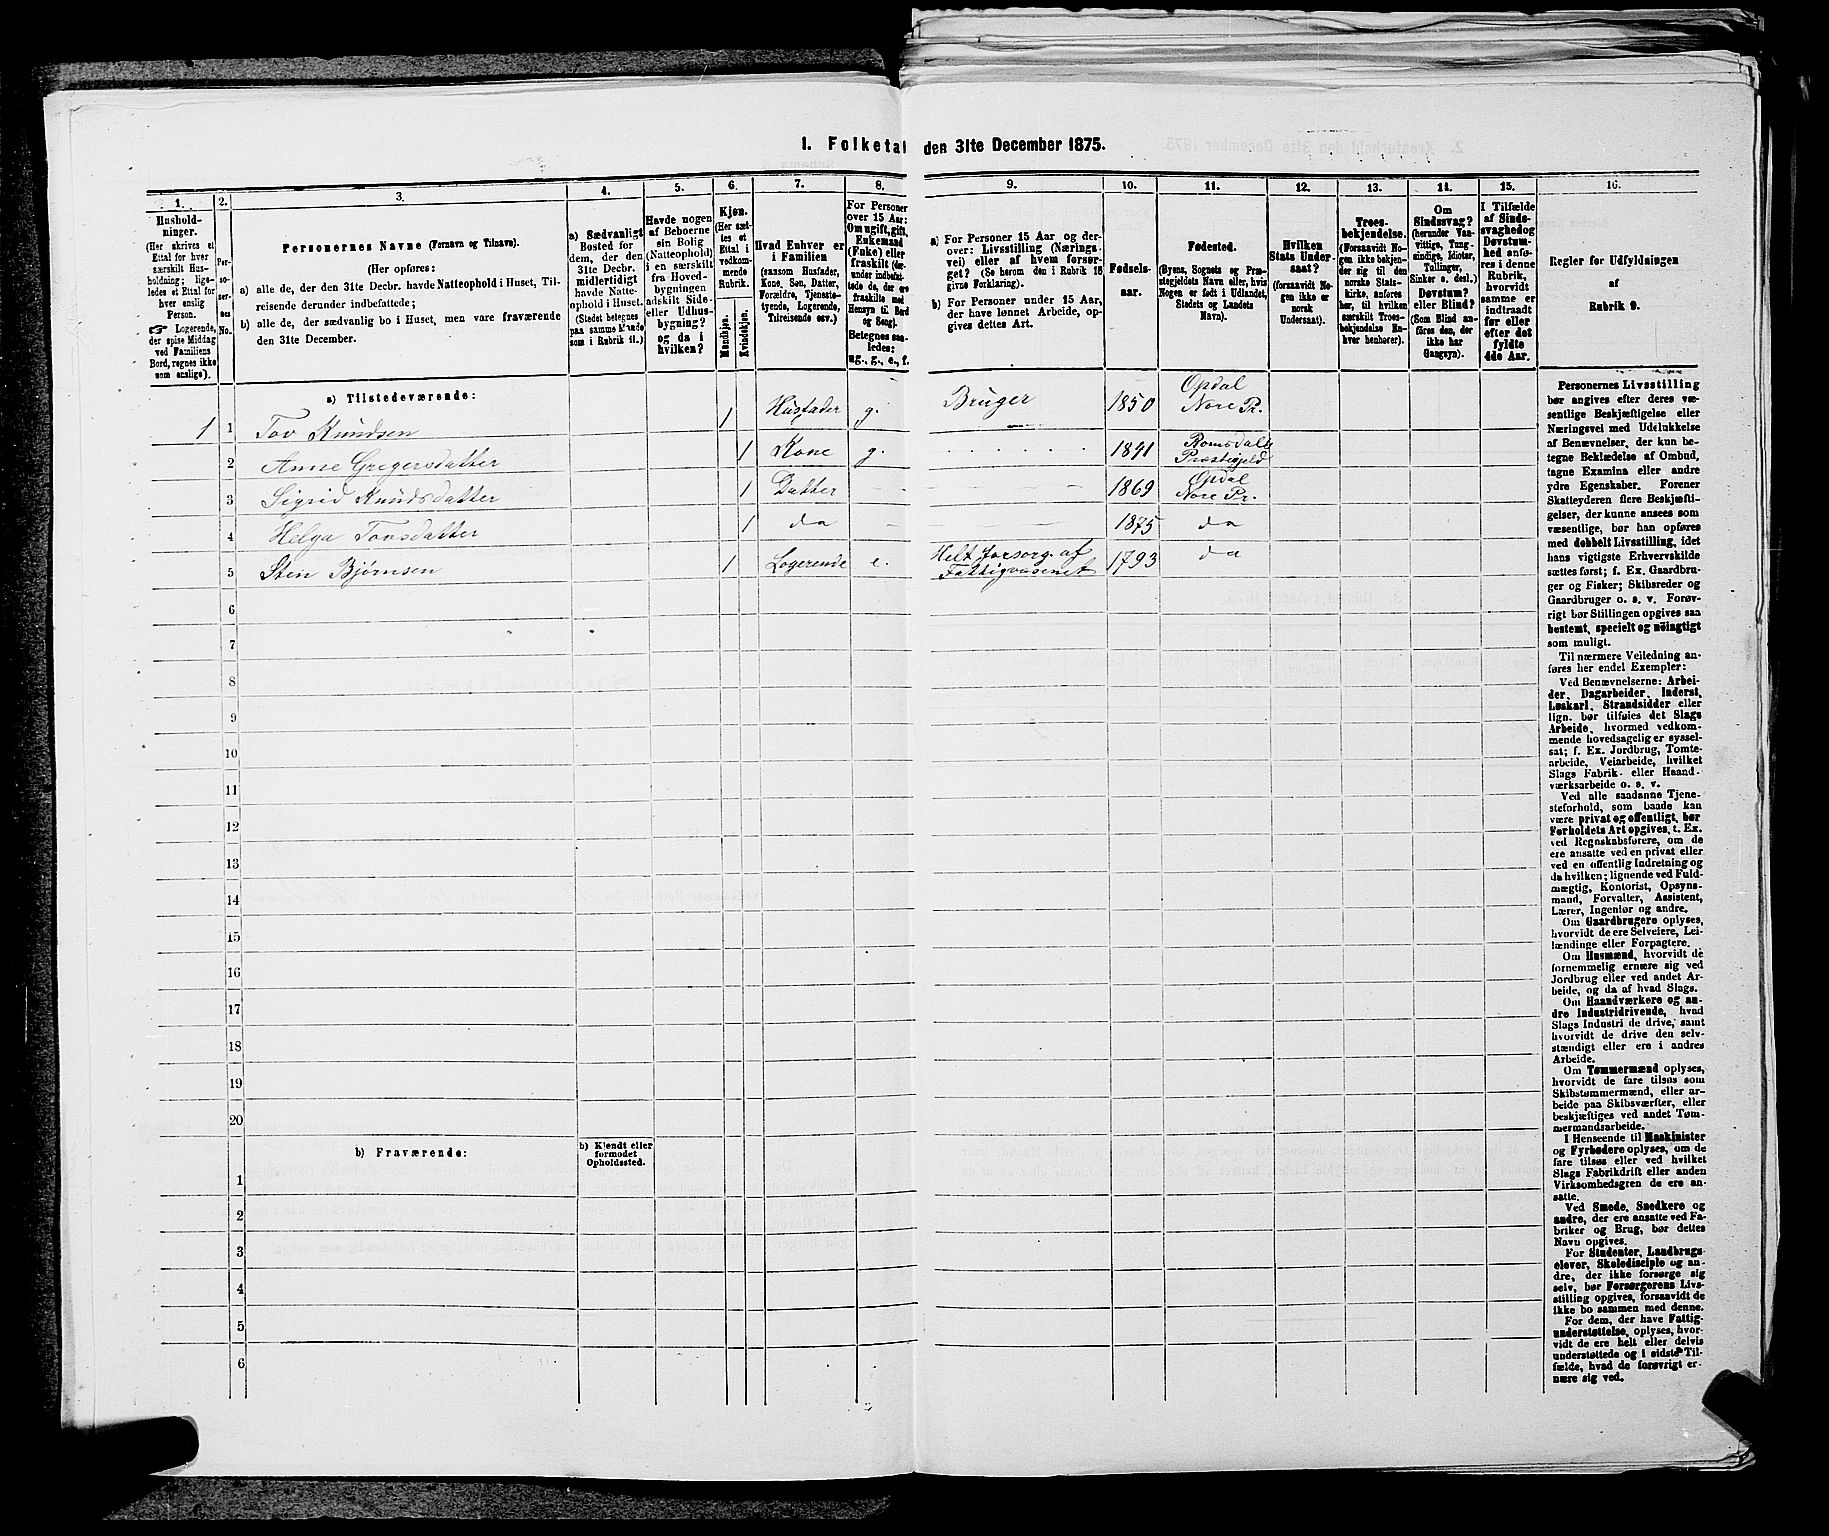 1. Folketal den 31te December 1875.
1.
Hushold-
ninger.
(Her skrives et
Ettal for hver
særskilt Hus-
holdning; lige-
ledes et Ettal for
hver enslig
Person.
☞ Logerende,
der spise Middag
ved Familiens
Bord, regnes ikke
som enslige).
2.
Per-
so-
ner-
nes
No.
3.
Personernes Navne (Fornavn og Tilnavn).
(Her opføres:
a) alle de, der den 31te Decbr. havde Natteophold i Huset, Til-
reisende derunder indbefattede;
b) alle de, der sædvanlig bo i Huset, men vare fraværende
den 31te December.
4.
a) Sædvanligt
Bosted for
dem, der den
31te Decbr.
midlertidigt
havde Natte-
ophold i Huset.
(Stedet betegnes
paa samme Maade
som i Rubrik 11.)
5.
Havde nogen
af Beboerne
sin Bolig
(Natteophold)
i en særskilt
fra Hoved-
bygningen
adskilt Side-
eller Udhus-
bygning?
og da i
hvilken?
6.
Kjøn.
(Her sæt-
tes et
Ettal i
vedkom-
mende
Rubrik.
Mandkjøn.
Kvindekjøn.
7.
Hvad Enhver er
i Familien
(saasom Husfader,
Kone, Søn, Datter,
Forældre, Tjeneste-
tyende, Logerende,
Tilreisende osv.)
8.
For Personer
over 15 Aar:
Om ugift, gift,
Enkemand
(Enke) eller
fraskilt (der-
under indbefat-
tede de, der ere
fraskilte med
Hensyn til Bord
og Seng).
Betegnes saa-
ledes:
ug., g., e., f.
9.
a) For Personer 15 Aar og der-
over: Livsstilling (Nærings-
vei) eller af hvem forsør-
get? (Se herom den i Rubrik 16
givne Forklaring).
b) For Personer under 15 Aar,
der have lønnet Arbeide, op-
gives dettes Art.
10.
Fødsels-
aar.
11.
Fødested.
(Byens, Sognets og Præ-
stegjeldets Navn eller, hvis
Nogen er født i Udlandet,
Stedets og Landets
Navn).
12.
Hvilken
Stats Under-
saat?
(forsaavidt No-
gen ikke er
norsk
Undersaat).
13.
Troes-
bekjendelse.
(Forsaavidt No-
gen ikke bekjen-
der sig til den
norske Stats-
kirke, anføres
her, til hvilken
særskilt Troes-
bekjendelse En-
hver henhører).
14.
Om
Sindssvag?
(herunder Van-
vittige, Tung-
sindige, Idioter,
Tullinger,
Sinker o. desl.)
Døvstum?
eller Blind?
(Som Blind an-
føres den, der
ikke har
Gangsyn).
15.
I Tilfælde
af Sinds-
svaghed og
Døvstum-
hed anfø-
res i denne
Rubrik,
hvorvidt
samme er
indtraadt
før eller
efter det
fyldte
4de Aar.
16.
Regler for Udfyldningen
af
Rubrik 9.
a) Tilstedeværende:
1 1 Tov Knudsen 1 Husfader g. Bruger 1850 Opdal Nore Pr.
2 Anne Gregersdatter 1 Kone g. 1841 Romsdals Præstegjeld
3 Sigrid Knudsdatter 1 Datter — — 1869 Opdal Nore Pr.
4 Helga Tovsdatter 1 da — — 1875 da
5 Sten Bjørnsen 1 Logerende e. Helt forsorg. af Fattigvæsenet 1793 da
6
7
8
9
10
11
12
13
14
15
16
17
18
19
20
b) Fraværende:
b) Kjendt eller
formodet
Opholdssted.
1
2
3
4
5
6
Personernes Livsstilling
bør angives efter deres væ-
sentlige Beskjæftigelse eller
Næringsvei med Udelukkelse
af Benævnelser, der kun be-
tegne Beklædelse af Ombud,
tagne Examina eller andre
ydre Egenskaber. Forener
Skatteyderen flere Beskjæfti-
gelser, der kunne ansees som
væsentlige, bør han opføres
med dobbelt Livsstilling, idet
hans vigtigste Erhvervskilde
sættes først; f. Ex. Gaardbru-
ger og Fisker; Skibsreder og
Gaardbruger o. s. v. Forøv-
rigt bør Stillingen opgives saa
bestemt, specielt og nøiagtigt
som muligt.
Til nærmere Veiledning an-
føres her endel Exempler:
Ved Benævnelserne: Arbei-
der, Dagarbeider, Inderst,
Løskarl, Strandsidder eller
lign. bør tilføies det Slags
Arbeide, hvormed vedkom-
mende hovedsagelig er syssel-
sat; f. Ex. Jordbrug, Tomte-
arbeide, Veiarbeide, hvilket
Slags Fabrik- eller Haand-
værksarbeide o. s. v.
Ved alle saadanne Tjene-
steforhold, som baade kan
være privat og offentligt, bør
Forholdets Art opgives, t. Ex.
ved Regnskabsførere, om de
ere ansatte ved en privat eller
ved en offentlig Indretning og
da hvilken; lignende ved Fuld-
mægtig, Kontorist, Opsyns-
mand, Forvalter, Assistent,
Lærer, Ingeniør og andre.
Om Gaardbrugere oplyses,
hvorvidt de ere Selveiere, Lei-
lændinge eller Forpagtere.
Om Husmænd, hvorvidt de
fornemmelig ernære sig ved
Jordbrug eller ved andet Ar-
beide, og da af hvad Slags.
Om Haandværkere og an-
dre Industridrivende, hvad
Slags Industri de drive, samt
hvorvidt de drive den selv-
stændigt eller ere i andres
Arbeide.
Om Tømmermænd oplyses,
hvorvidt de fare tilsøs som
Skibstømmermænd, eller ar-
beide paa Skibsværfter, eller
beskjæftiges ved andet Tøm-
mermandsarbeide.
I Henseende til Maskinister
og Fyrbødere oplyses, om de
fare tilsøs eller ved hvilket
Slags Fabrikdrift eller anden
Virksomhedsgren de ere an-
satte.
Ved Smede, Snedkere og
andre, der ere ansatte ved Fa-
briker og Brug, bør dettes
Navn opgives.
For Studenter, Landbrugs-
elever, Skoledisciple og an-
dre, der ikke forsørge sig
selv, bør Forsørgerens Livs-
stilling opgives, forsaavidt de
ikke bo sammen med denne.
For dem, der have Fattig-
understøttelse, oplyses, hvor-
vidt de ere helt eller delvis
understøttede og i sidste Til-
fælde, hvad de forøvrigt er-
nære sig ved.